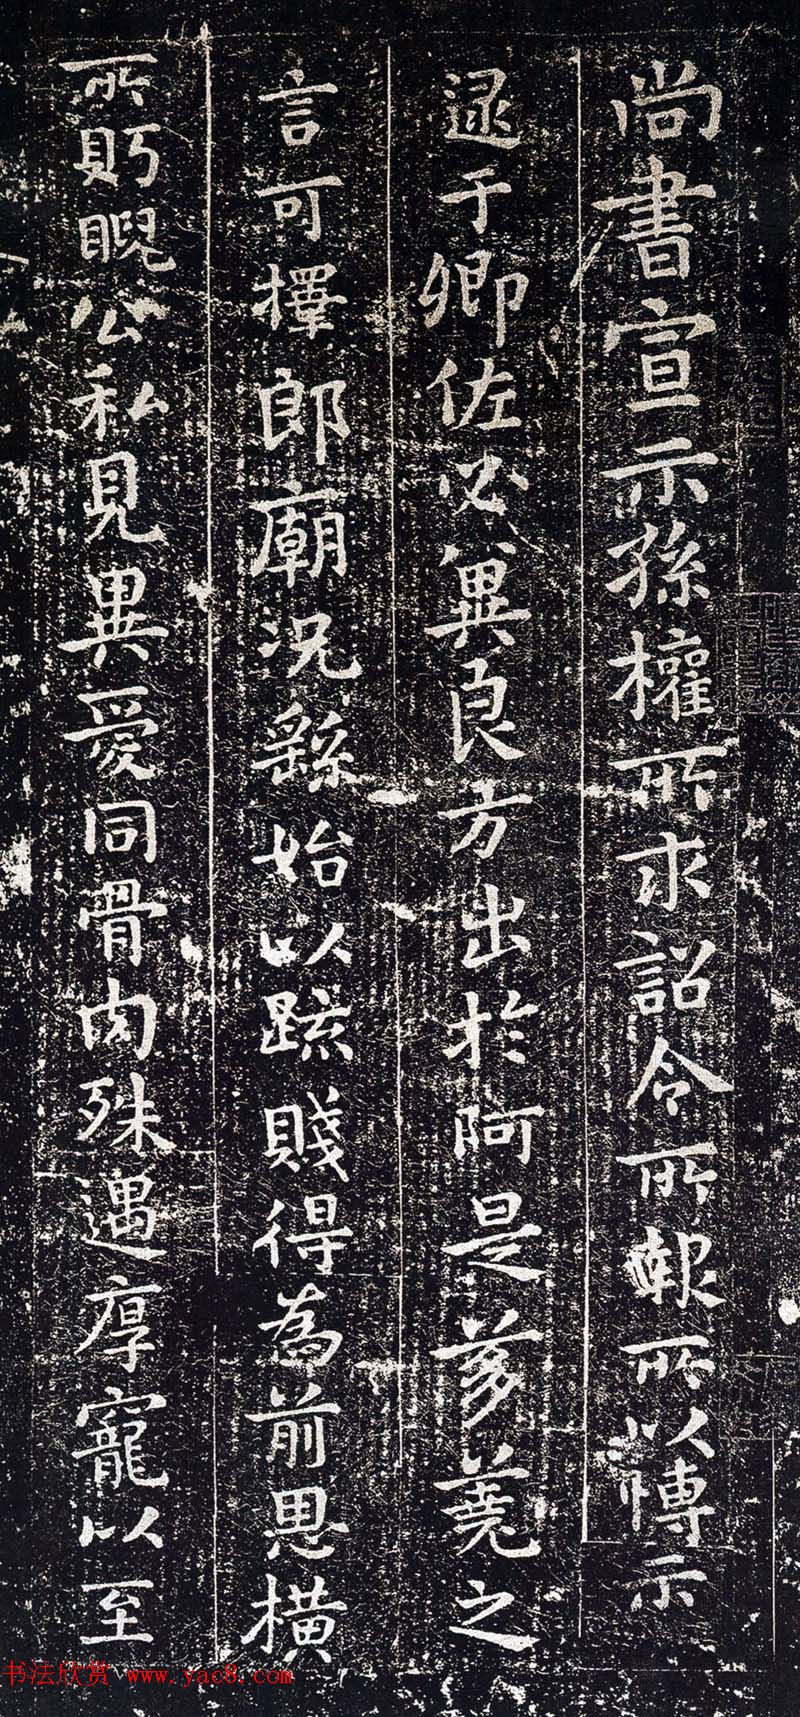 尚書宣示孫權所求詔令所報所以博示
逮于卿佐必冀良方出於阿是芻蕘之
言可擇郎廟況繇始以疏賤得為前恩橫
所眄睨公私見異愛同骨肉殊遇厚寵以至
书法欣赏 www.yac8.com